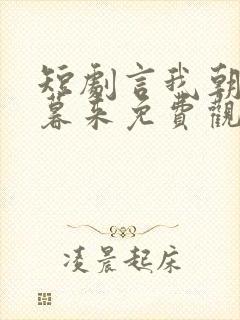 短劇言我朝
暮未免費觀
凌晨起床